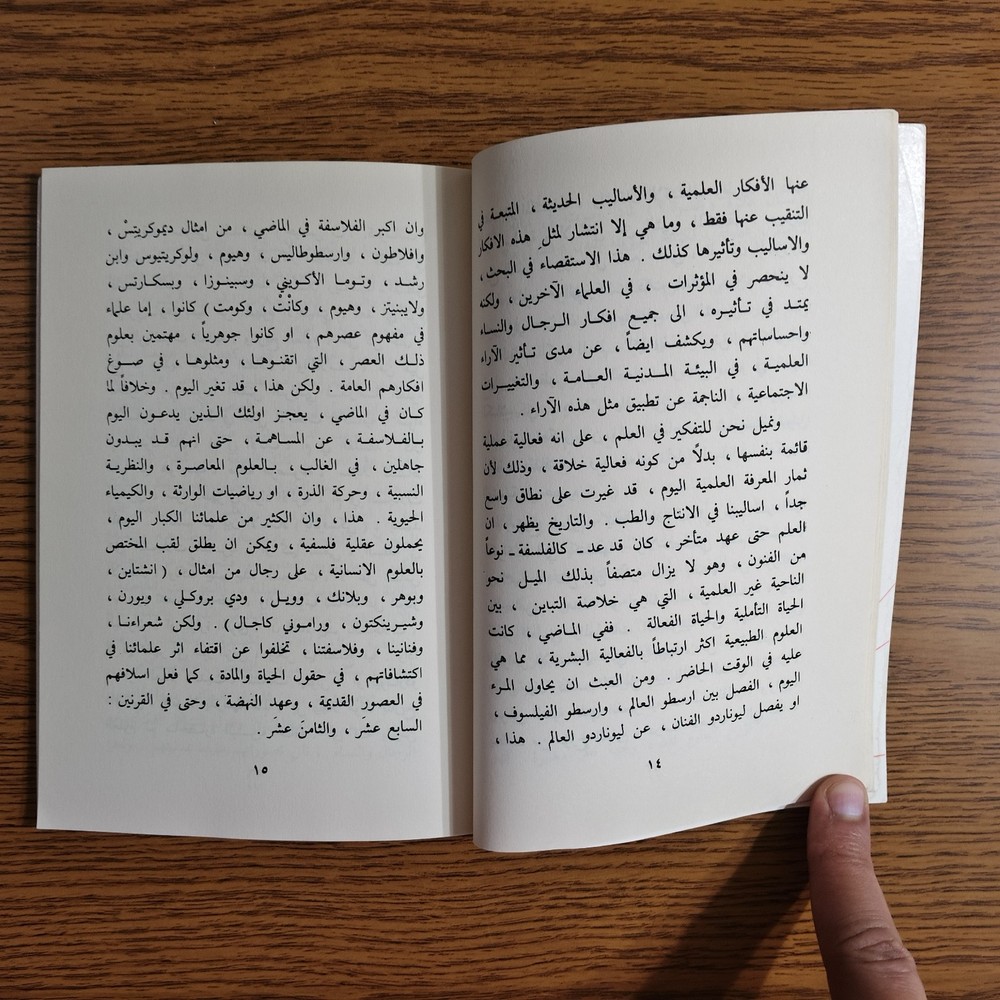 عنها الأفكار العلمية ، والأساليب الحديثة ، المتبعة في
التنقيب عنها فقط ، وما هي إلا انتشار لمثل هذه الافكار
والاساليب وتأثيرها كذلك . هذا الاستقصاء في البحث ،
لا ينحصر في المؤثرات ، في العلماء الآخرين ، ولكنه
يمتد في تـأثيـره ، الى جميـع افكار الـرجـال والنسـاء
واحساساتهم ، ويكشف ايضاً ، عن مدى تـأثير الآراء
العلميـة ، في البيئـة المـدنيـة العـامـة ، والتغييـرات
الاجتماعية ، الناجمة عن تطبيق مثل هذه الآراء .
ونميل نحن للتفكير في العلم ، على انه فعالية عملية
قائمة بنفسها ، بدلًا من كونه فعالية خلاقة ، وذلك لأن
ثمار المعرفة العلمية اليوم ، قد غيرت على نطاق واسع
جداً ، اساليبنا في الانتاج والطب . والتاريخ يظهر ، ان
العلم حتى عهد متأخر ، كان قد عد ـ كالفلسفة ـ نوعاً
من الفنون ، وهو لا يزال متصفاً بذلك الميـل نحو
الناحية غير العلمية ، التي هي خلاصة التباين ، بين
الحياة التأملية والحياة الفعالة . ففي المـاضي ، كانت
العلوم الطبيعية اكثر ارتباطاً بالفعالية البشرية ، مما هي
عليه في الوقت الحاضر . ومن العبث ان يحاول المـرء
اليوم ، الفصل بين ارسطو العالم ، وارسطو الفيلسوف ،
او يفصل ليوناردو الفنان ، عن ليوناردو العالم . هذا ،
١٤
وان اكبر الفلاسفة في الماضي ، من امثال ديموكريتِسْ ،
وافلاطون ، وارسطوطاليس ، وهيوم ، ولوكريتيوس وابن
رشـد ، وتـومـا الأكـويني ، وسبينـوزا ، وبسكـارتس ،
ولايبنيتز ، وهيوم ، وكانْتْ ، وكومت) كانوا ، إما علماء
في مفهوم عصرهم ، او كانوا جوهرياً ، مهتمين بعلوم
ذلـك العصر ، التي اتقنـوهـا ، ومثلوهـا ، في صـوغ
افكارهم العامة . ولكن هذا ، قد تغير اليوم . وخلافاً لما
كـان في الماضي ، يعجـز اولئك الـذين يدعـون اليوم
بـالفـلاسفـة ، عن المسـاهمـة ، حتى انهم قـد يبـدون
جاهلين ، في الغالب ، بـالعلوم المعاصـرة ، والنظريـة
النسبية ، وحركة الذرة ، او رياضيات الوارثة ، والكيمياء
الحيوية . هذا ، وان الكثير من علمائنا الكبار اليوم ،
يحملون عقلية فلسفية ، ويمكن ان يطلق لقب المختص
بالعلوم الانسانية ، على رجال من امثال ، ( انشتاين ،
وبوهر ، وبلانك ، وويـل ، ودي بروكـلي ، ويورن ،
وشيـرينكتون ، ورامـوني كاجـال ) . ولكن شعراءنـا ،
وفنانينا ، وفلاسفتنا ، تخلفوا عن اقتفاء اثر علمائنا في
اكتشافاتهم ، في حقول الحياة والمادة ، كما فعل اسلافهم
في العصور القديمة ، وعهد النهضة ، وحتى في القرنين :
السابع عشَر ، والثامنَ عشَر .
١٥